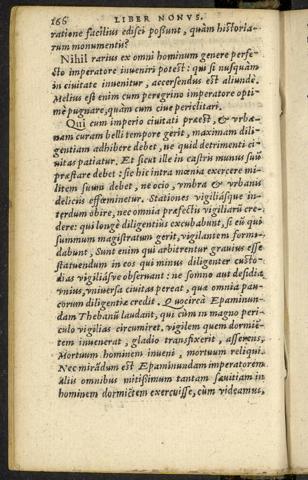 166 LIBER NONVS.
ratione facilius edisci possunt, quàm historia-
rum monumentis?
Nihil rarius ex omni hominum genere perfe-
cto imperatore inveniri potest: qui si nusquàm
in civitate invenitur, accersendus est aliundè.
Melius est enim cum peregrino imperatore opti-
mè pugnare, quàm cum cive periclitari.
Qui cum imperio civitati præest, & vrba-
nam curam belli tempore gerit, maximam dili-
gentiam adhibere debet, ne quid detrimenti ci-
vitas patiatur. Et sicut ille in castris munus suũ
præstare debet: sic hic intra mœnia exercere mi-
litem suum debet, ne ocio, vmbra & vrbanis
deliciis effœminetur. Stationes vigiliásque in-
terdum obire, nec omnia præfectis vigiliarũ cre-
dere: qui longè diligentius excubabunt, si eũ qui
summum magistratum gerit, vigilantem formi-
dabunt, Sunt enim qui arbitrentur gravius esse
statuendum in eos qui minus diligenter custo-
dias vigiliásve observant: ne somno aut desidia
vnius, vniversa civitas pereat, quæ omnia pau-
corum diligentiæ credit. Quocircà Epaminun-
dam Thebanũ laudant, qui cùm in magno peri-
culo vigilias circumiret, vigilem quem dormiẽ-
tem invenerat, gladio transfixerit, asserens,
Mortuum hominem inveni, mortuum reliqui.
Nec mirãdum est Epaminundam imperatorem
aliis omnibus mitissimum tantam sævitiam in
hominem dormiẽtem exercuisse, cùm videamus,